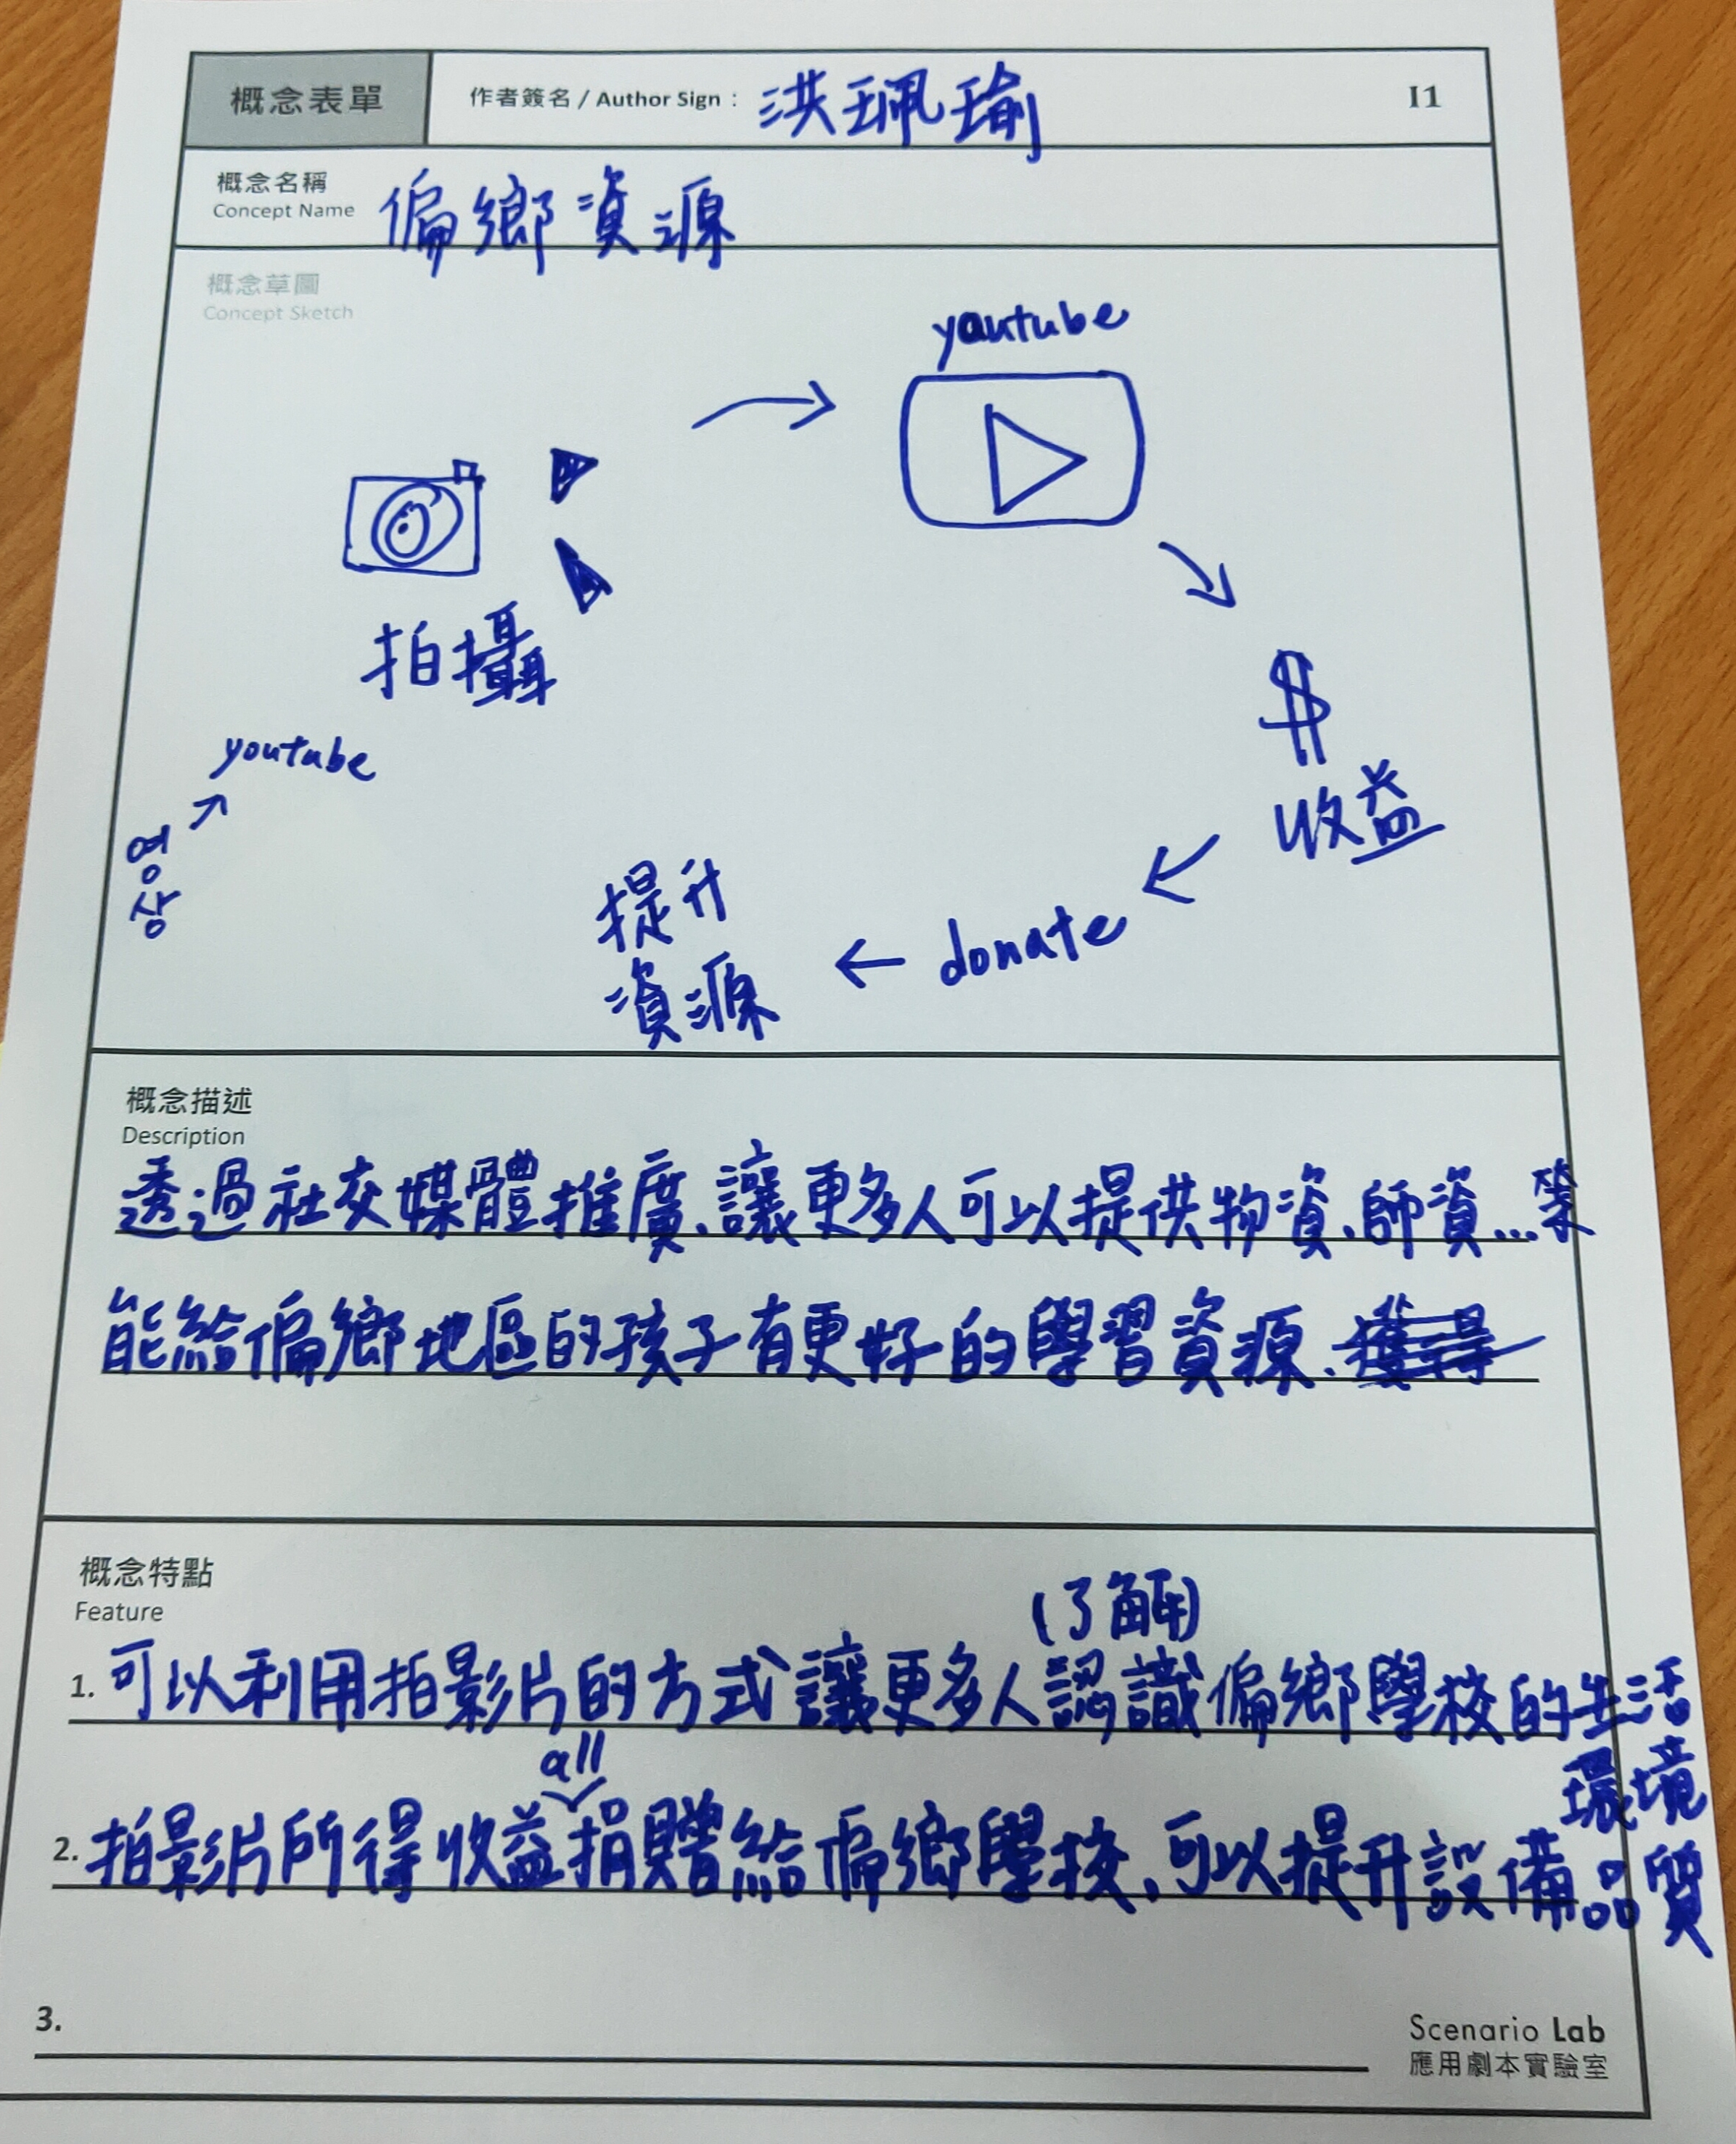 概念表單 作者簽名 / Author Sign : 洪珮瑜 I1
概念名稱
Concept Name 偏鄉資源
概念草圖
Concept Sketch
yautube
拍攝
youtube
영상
$
收益
donate
提升
資源
概念描述
Description
透過社交媒體推廣、讓更多人可以提供物資、師資...等
能給偏鄉地區的孩子有更好的學習資源、獲得
概念特點
Feature
(了解)
1. 可以利用拍影片的方式讓更多人認識偏鄉學校的生活
環境
all
2. 拍影片所得收益捐贈給偏鄉學校、可以提升設備品質
3.
Scenario Lab
應用劇本實驗室